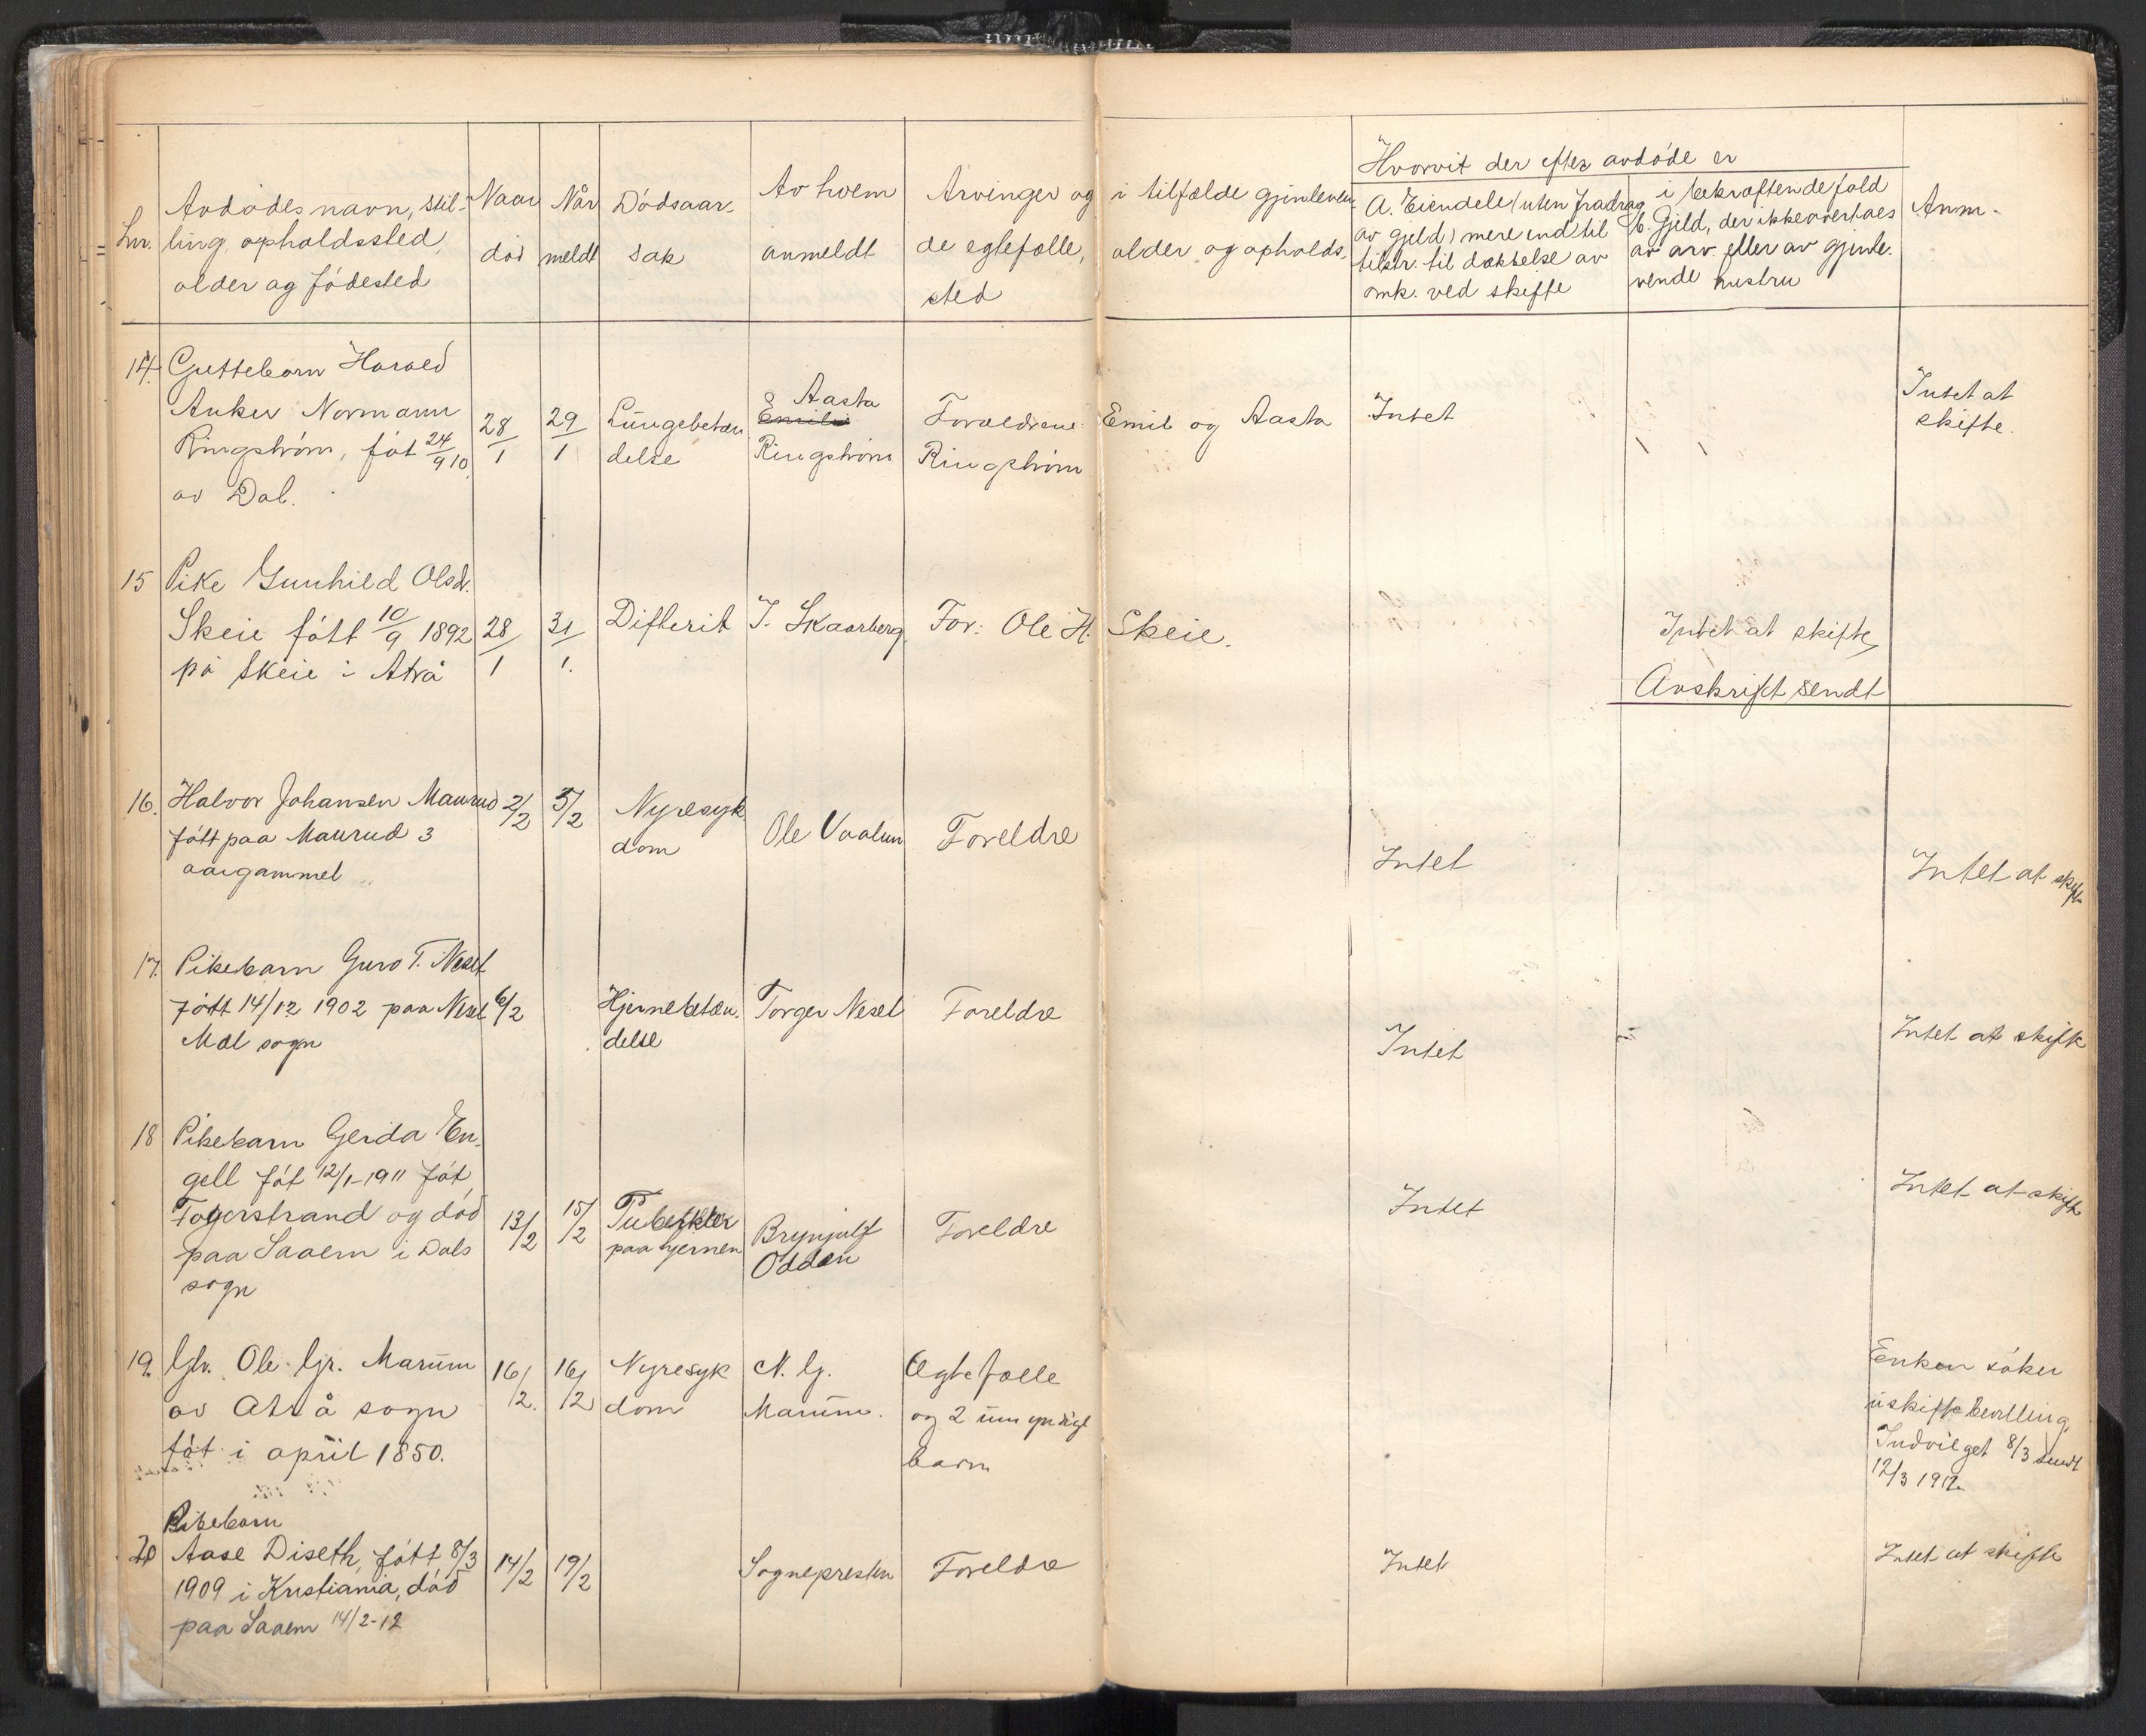 Hvorvit der efter avdøde er
Lnr.
Avdødes navn, stil-
ling, opholdssted,
alder og fødested
Naar
død
Når
meldt
Dødsaar-
sak
Av hvem
anmeldt
Arvinger og i tilfælde gjenleven-
de egtefælle, alder og opholds-
sted
A. Eiendele (uten fradrag
av gjeld) mere end til
tilstr. til dækkelse av
omk. ved skifte
i bekræftende fald
b. Gjeld, der ikke overtaes
av arv. eller av gjenle-
vende hustru
Anm-
14.
Guttebarn Harald
Anker Normann
Ringstrøm, føt 24/9 10
av Dal.
28/1
29/1
Lungebetæn
delse
Aasta
Emilie
Ringstrøm
Forældrene Emil og Aasta
Ringstrøm
Intet
Intet at
skifte.
15
Pike Gunhild Olsdr.
Skeie født 10/9 1892
på Skeie i Atrå
28/1
31/1.
Difterit
T. Skaarberg
For: Ole H. Skeie.
Intet at skifte
Avskrift sendt
16.
Halvor Johansen Maurud
født paa Maurud 3
aargammel
2/2
5/2
Nyresyk
dom
Ole Vaalun
Foreldre
Intet
Intet at skifte
17.
Pikebarn Guro T. Nesel
født 14/12 1902 paa Nesel
Mæl sogn
6/2
Hjernebetæn-
delse
Torger Nesel
Foreldre
Intet
Intet at skifte
18
Pikebarn Gerda En-
gell føt 12/1-1911 føt
Fagerstrand og død
paa Saaem i Dals
sogn
13/2
15/2
Tuberkler
paa hjernen
Brynjulf
Odden
Foreldre
Intet
Intet at skifte
19.
Gbr. Ole Gr. Marum
av Atrå sogn
føt i april 1850.
16/2.
16/2
Nyresyk
dom
N. G.
Marum.
Ægtefælle
og 2 umyndige
barn
Enken søker
uskiftebevilling,
Indvilget 8/3 sendt
12/3 1912.
Pikebarn
20
Aase Diseth, født 8/3
1909 i Kristiania, død
paa Saaem 14/2-12
14/2
19/2
Sognepresten
Foreldre
Intet
Intet at skifte